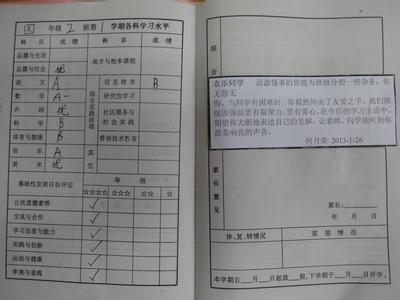 四 年级 2 班第 学期各科学习水平
科目 成绩 科目 成绩
品德与生活 地方与校本课程
品德与社会 优
语文 A 综合实践活动 信息技术 B
数学 A- 研究性学习
外语 优 社区服务与社会实践
科学 B
体育与健康 B 劳动技术教育
音乐 A 其它
美术 优
基础性发展目标评定 等级
☆☆☆☆ ☆☆☆ ☆☆ ☆
公民道德素养 ✓
交流与合作 ✓
学习态度与能力 ✓
实践与创新 ✓
运动与健康 ✓
审美与表现 ✓
综合
袁乐同学 活泼懂事的你能为班级分担一些杂务,你无怨无
悔。当同学有困难时,你毅然伸出了友爱之手,我们班
级因你而更有凝聚力,更有爱心。在今后的学习生活中,
期望你大胆地表达自己的见解,让老师、同学能听到你
甜美响亮的声音。
何月荣 2013-1-26
家长意见
家长:
年 月 日
休、复、转情况 奖惩情况
本学期自 月 日起放 假,下学期于 月 日开学。